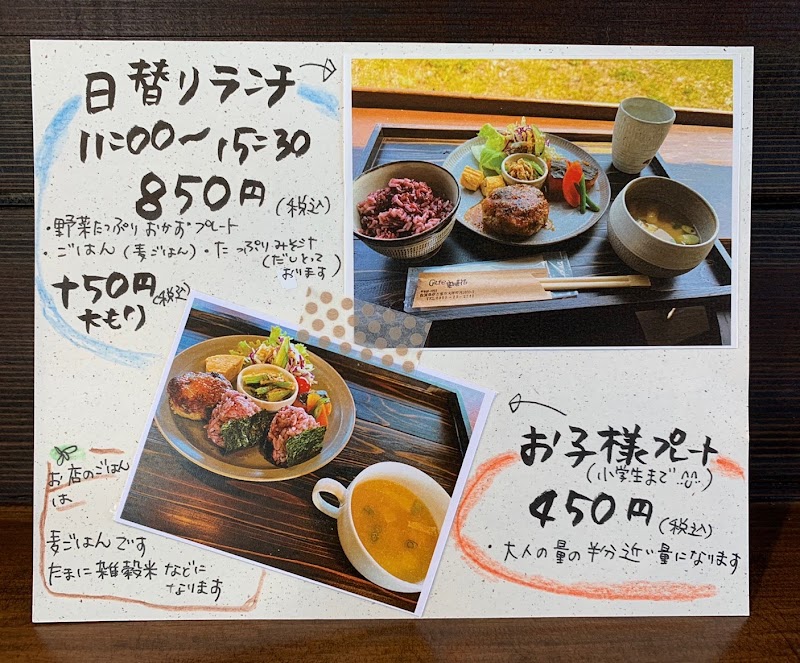 日替りランチ
11:00〜15:30
850円(税込)
・野菜たっぷりおかずプレート
・ごはん(麦ごはん)・たっぷりみそ汁
(だしとって
おります)
+50円(税込)
大もり
お子様プレート
(小学生まで)
450円(税込)
・大人の量の半分近い量になります
お店のごはん
は
麦ごはんです
たまに雑穀米などに
なります